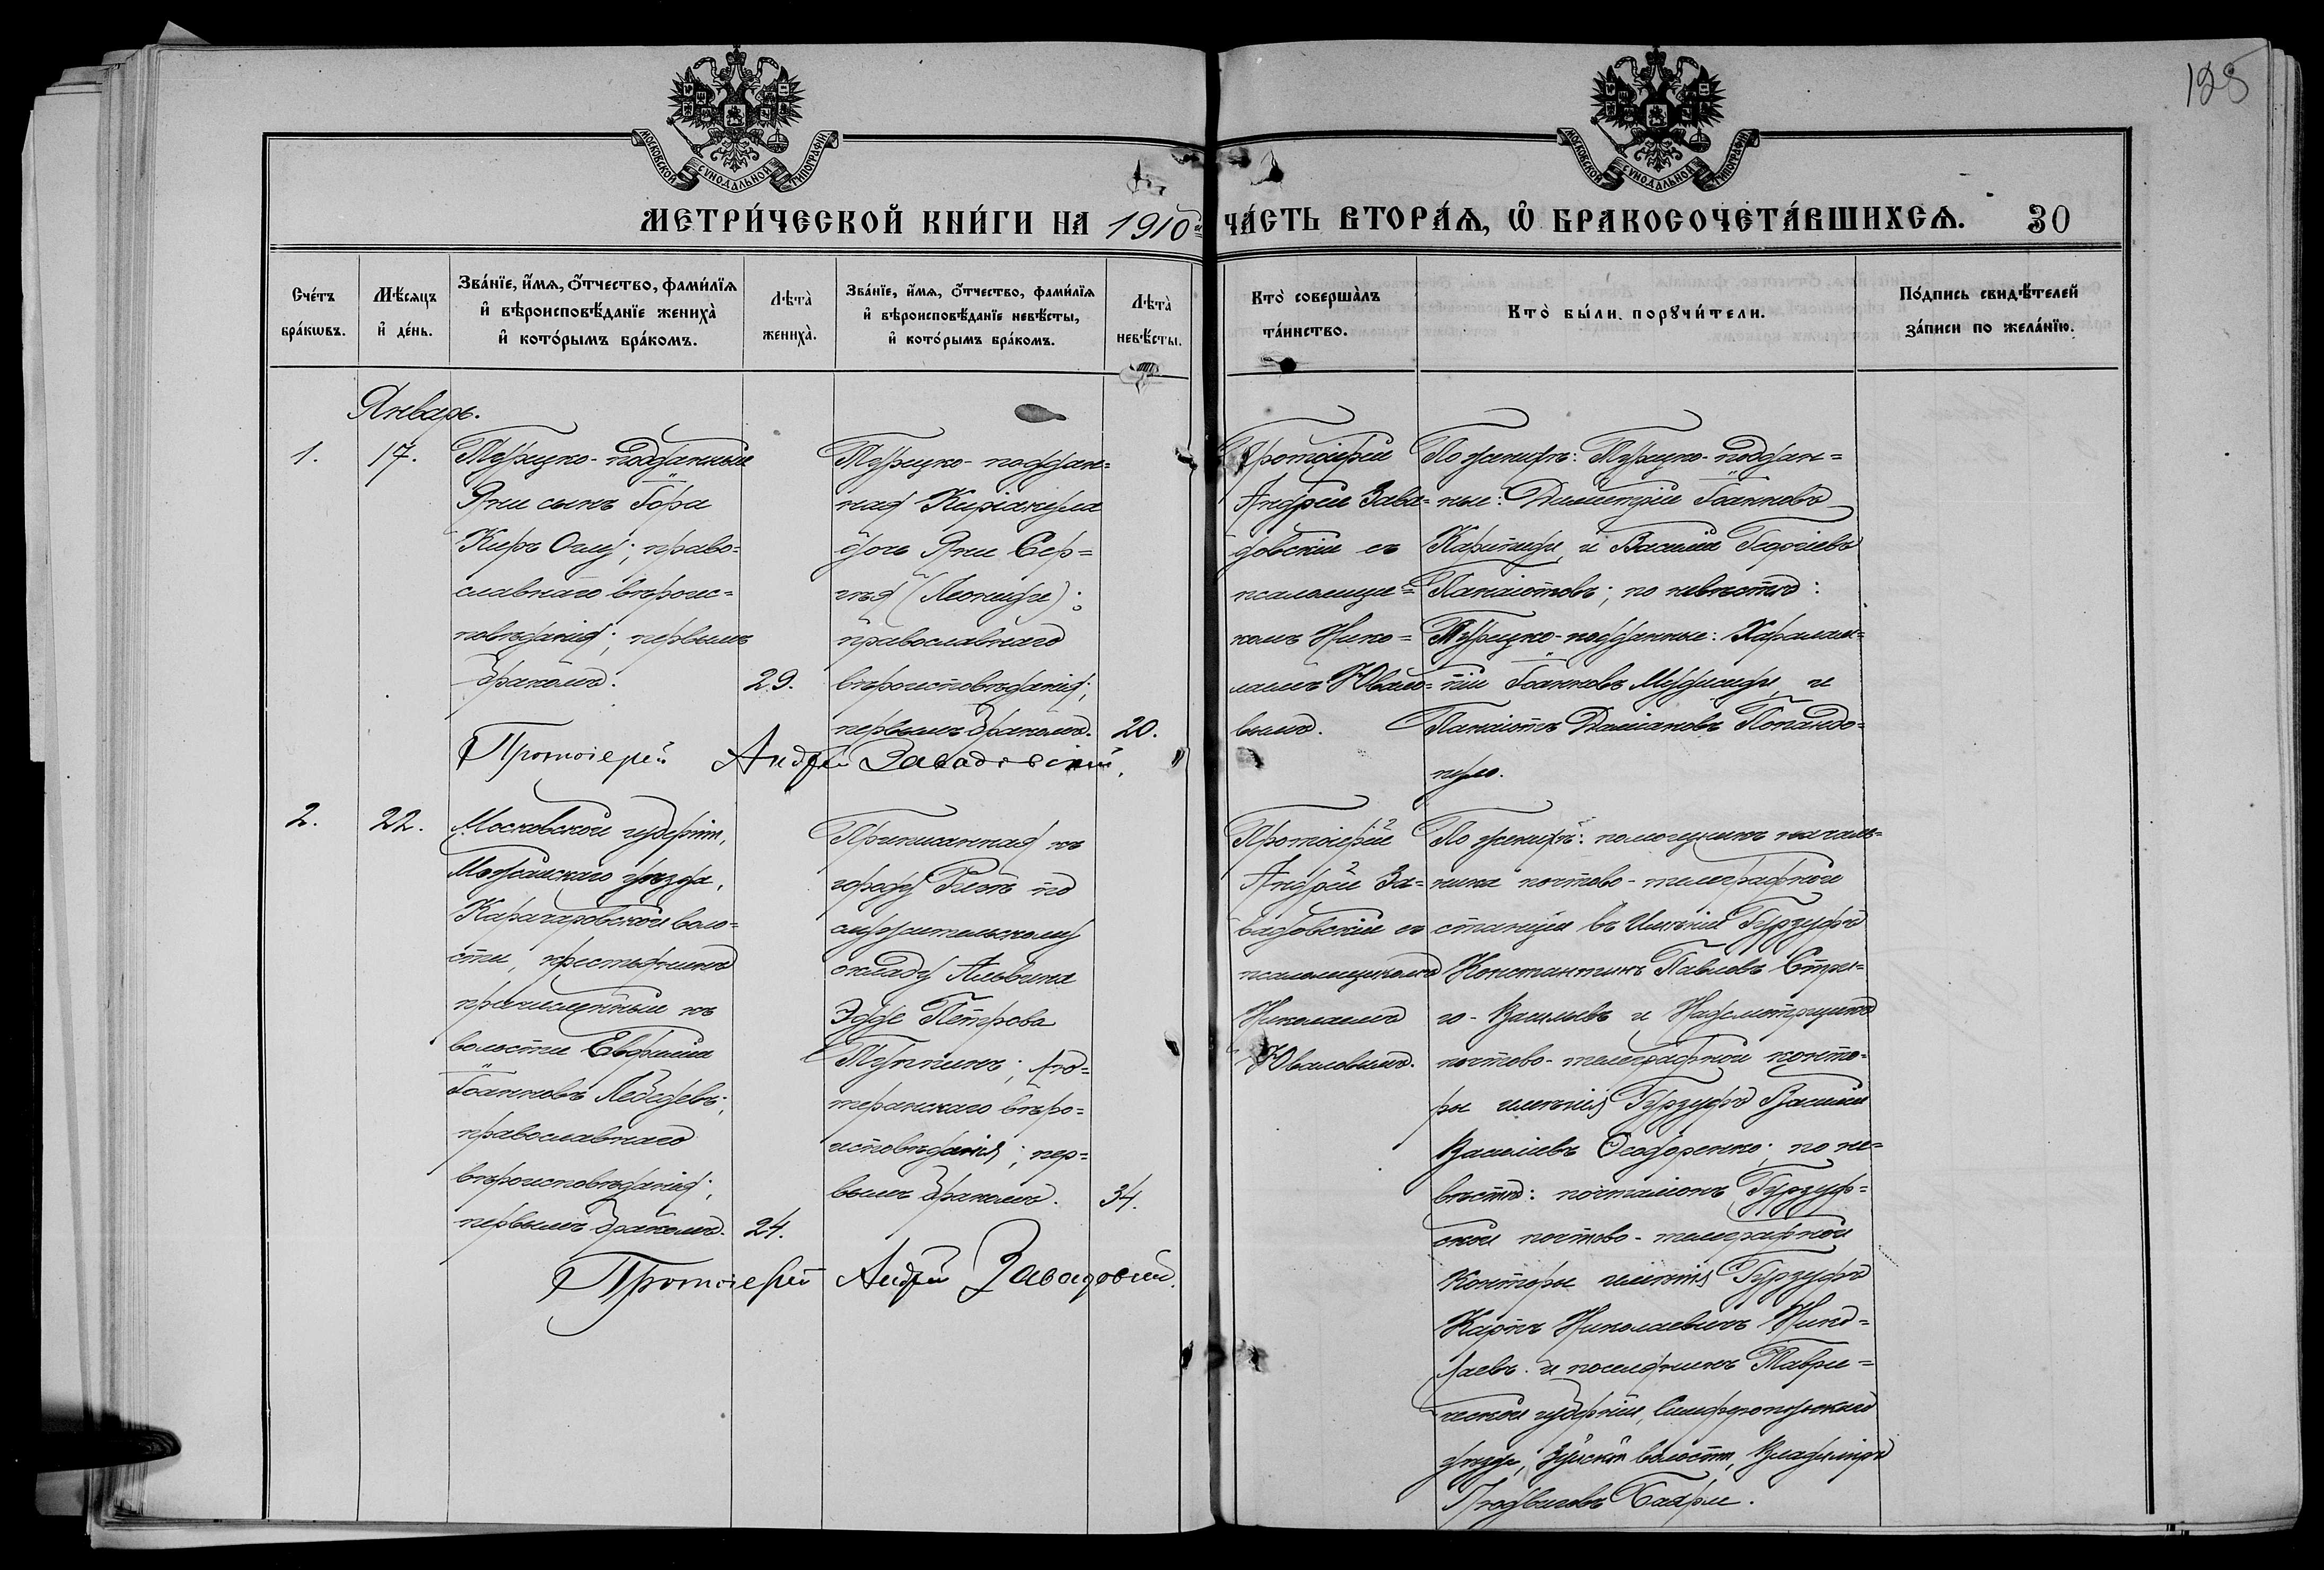 128
МОСКОВСКОЙ СУНОДАЛЬНОЙ ТИПОГРАФІИ
МОСКОВСКОЙ СУНОДАЛЬНОЙ ТИПОГРАФІИ
МЕТРИ́ЧЕСКОЙ КНИ́ГИ НА 1910й
ЧА́СТЬ ВТОРА́Ѧ, Ѽ БРАКОСОЧЕТА́ВШИХСѦ. 30
Сче́тъ бра́кѡвъ.
Мѣ́сѧцъ и҆ де́нь.
Зва́нїе, и҆́мѧ, ѻ҆́тчество, фами́лїѧ
и҆ вѣроисповѣ́данїе жениха̀
и҆ кото́рымъ бра́комъ.
Лѣта̀ жениха̀.
Зва́нїе, и҆́мѧ, ѻ҆́тчество, фами́лїѧ
и҆ вѣроисповѣ́данїе невѣ́сты,
и҆ кото́рымъ бра́комъ.
Лѣта̀ невѣ́сты.
Кто̀ соверша̀лъ
та́инство.
Кто̀ бы́ли порꙋчи́тели.
По́дпись свидѣ́телей
за́писи по жела́нїю.
Январь.
1.
17.
Турецко-подданный
Яни сынъ Гора
Киръ Оглу; право=
славнаго вѣроис=
повѣданія; первымъ
бракомъ.
29.
Турецко-поддан=
ная Киріакула
дочь Яни
православнаго
вѣроисповѣданія;
первымъ бракомъ.
20.
Протоіерей
Андрей Зава=
довскій съ
псаломщи=
комъ Нико=
лаемъ Ювало=
вымъ.
По женихѣ: Турецко-поддан=
ные: Димитрій Іоанновъ
и Василій Георгіевъ
Панаіотовъ; по невѣстѣ:
Турецко-подданные: Харалам=
пій Іоанновъ и
Панаіотъ Даміановъ
Протоіерей Андрей Завадовскій.
2.
22.
Московской губерніи,
Можайскаго уѣзда,
Карачаровской воло=
сти, крестьянинъ
причисленный къ
волости Евфимій
Іоанновъ Лебедевъ;
православнаго
вѣроисповѣданія;
первымъ бракомъ.
24.
Приписанная къ
городу
окладу Альвина
Эдде Петрова
лю=
теранскаго вѣро=
исповѣданія; пер=
вымъ бракомъ.
34.
Протоіерей
Андрей За=
вадовскій съ
псаломщикомъ
Николаемъ
Юваловымъ.
По женихѣ: помощникъ началь=
ника почтово-телеграфной
станціи въ имѣніи Гурзуфъ
Константинъ Павловъ Стри=
го-Васильевъ и Надсмотрщикъ
почтово-телеграфной конто=
ры имѣнія Гурзуфъ Василій
Василіевъ Ѳеодоренко; по не=
вѣстѣ: почталіонъ Гурзуф=
ской почтово-телеграфной
Конторы имѣнія Гурзуфъ
Карпъ Николаевичъ Нико=
лаевъ и поселянинъ Таври=
ческой губерніи, Симферопольскаго
уѣзда, Зуйской волости, Владиміръ
Людвиговъ
Протоіерей Андрей Завадовскій.